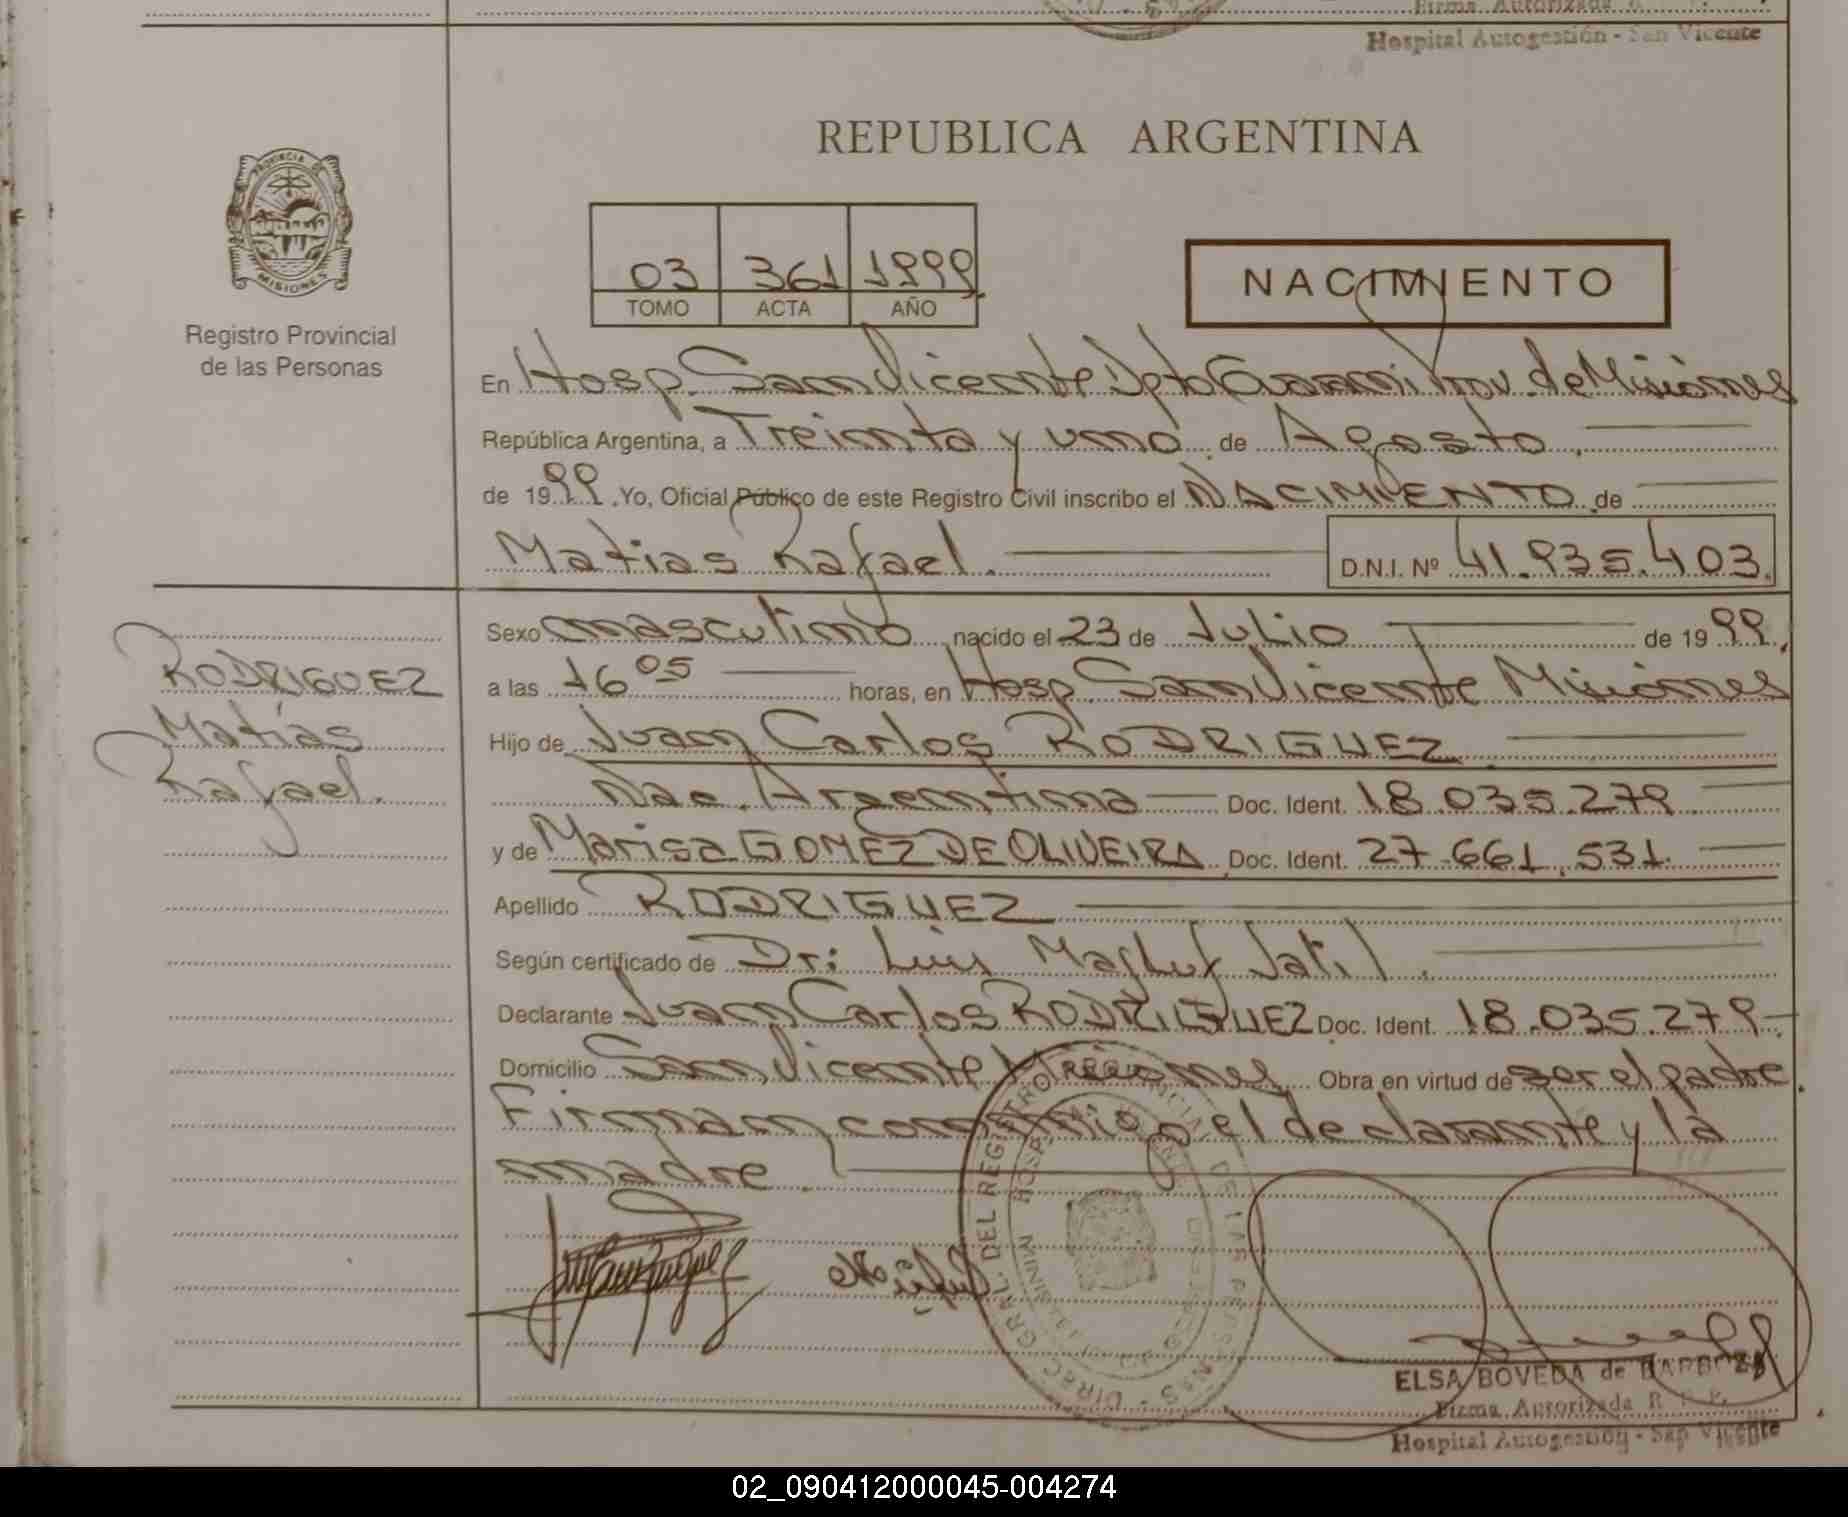 Firma Autorizada
Hospital Autogestión - San Vicente
REPUBLICA ARGENTINA
PROVINCIA DE
MISIONES
Registro Provincial
de las Personas
03 361 1999
TOMO ACTA AÑO
NACIMIENTO
En Hosp. San Vicente Dpto Guarani Prov. de Misiones
República Argentina, a Treinta y uno de Agosto
de 1999. Yo, Oficial Público de este Registro Civil inscribo el NACIMIENTO de
Matias Rafael. D.N.I. Nº 41.935.403.
Sexo masculino nacido el 23 de Julio de 1999.
a las 16 05 horas, en Hosp. San Vicente Misiones
Hijo de Juan Carlos RODRIGUEZ
Nac. Argentina Doc. Ident. 18.035.279
y de Marisa GOMEZ DE OLIVEIRA Doc. Ident. 27.661.531
Apellido RODRIGUEZ
Según certificado de Dr: Luis
Declarante Juan Carlos RODRIGUEZ Doc. Ident. 18.035.279
Domicilio San Vicente Misiones Obra en virtud de ser el padre.
Firman conmigo el declarante y la
madre.
RODRIGUEZ
Matías
Rafael.
DIREC. GRAL. DEL REGISTRO PROVINCIAL DE LAS PERSONAS
ELSA BOVEDA de BARBOZA
Firma Autorizada R. P. P.
Hospital Autogestión - San Vicente
02_090412000045-004274